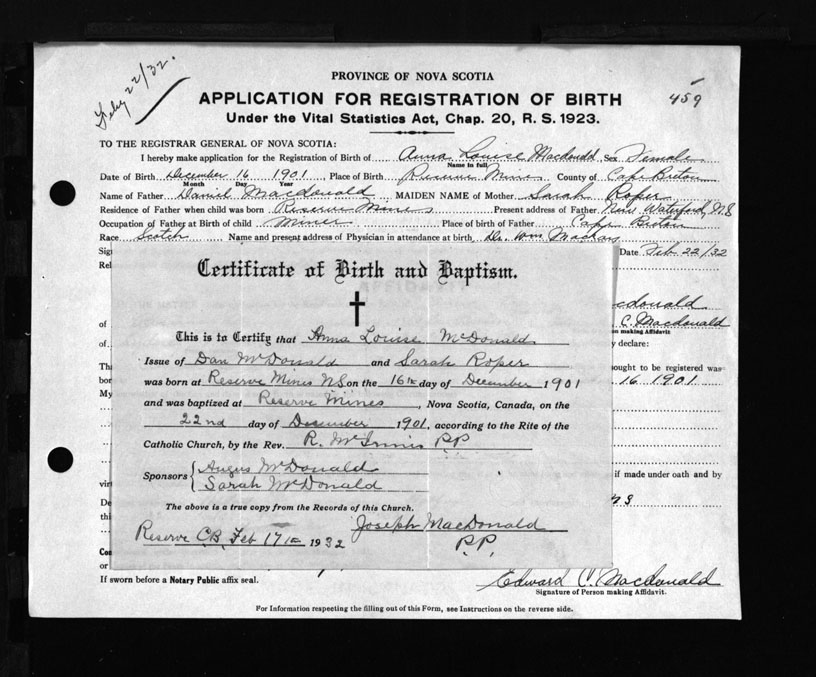 Feby 22/32.
PROVINCE OF NOVA SCOTIA
459
APPLICATION FOR REGISTRATION OF BIRTH
Under the Vital Statistics Act, Chap. 20, R. S. 1923.
TO THE REGISTRAR GENERAL OF NOVA SCOTIA:
I hereby make application for the Registration of Birth of Anna Louise Macdonald Sex Female
Name in full
Date of Birth December 16 1901 Place of Birth Reserve Mines County of Cape Breton
Month Day Year
Name of Father Daniel Macdonald MAIDEN NAME of Mother Sarah Roper
Residence of Father when child was born Reserve Mines Present address of Father New Waterford, N.S
Occupation of Father at Birth of child Miner Place of birth of Father Cape Breton
Race Scotch Name and present address of Physician in attendance at birth, Dr. Wm
Sig Date Feb 22/32
Rel
Certificate of Birth and Baptism.
This is to Certify that Anna Louise McDonald
Issue of Dan McDonald and Sarah Roper
was born at Reserve Mines NS on the 16th day of December 1901
and was baptized at Reserve Mines, Nova Scotia, Canada, on the
22nd day of December 1901, according to the Rite of the
Catholic Church, by the Rev. R. McInnis P.P.
Sponsors { Angus McDonald
Sarah McDonald
The above is a true copy from the Records of this Church.
Joseph MacDonald
Reserve C.B. Feb 17th 1932 P.P.
of
of
Tha
bor
My
virt
De
this
Cou
or
cdonald
C. Macdonald
n making Affidavit.
y declare:
ought to be registered was
16 1901
if made under oath and by
If sworn before a Notary Public affix seal.
Edward C. Macdonald
Signature of Person making Affidavit.
For Information respecting the filling out of this Form, see Instructions on the reverse side.